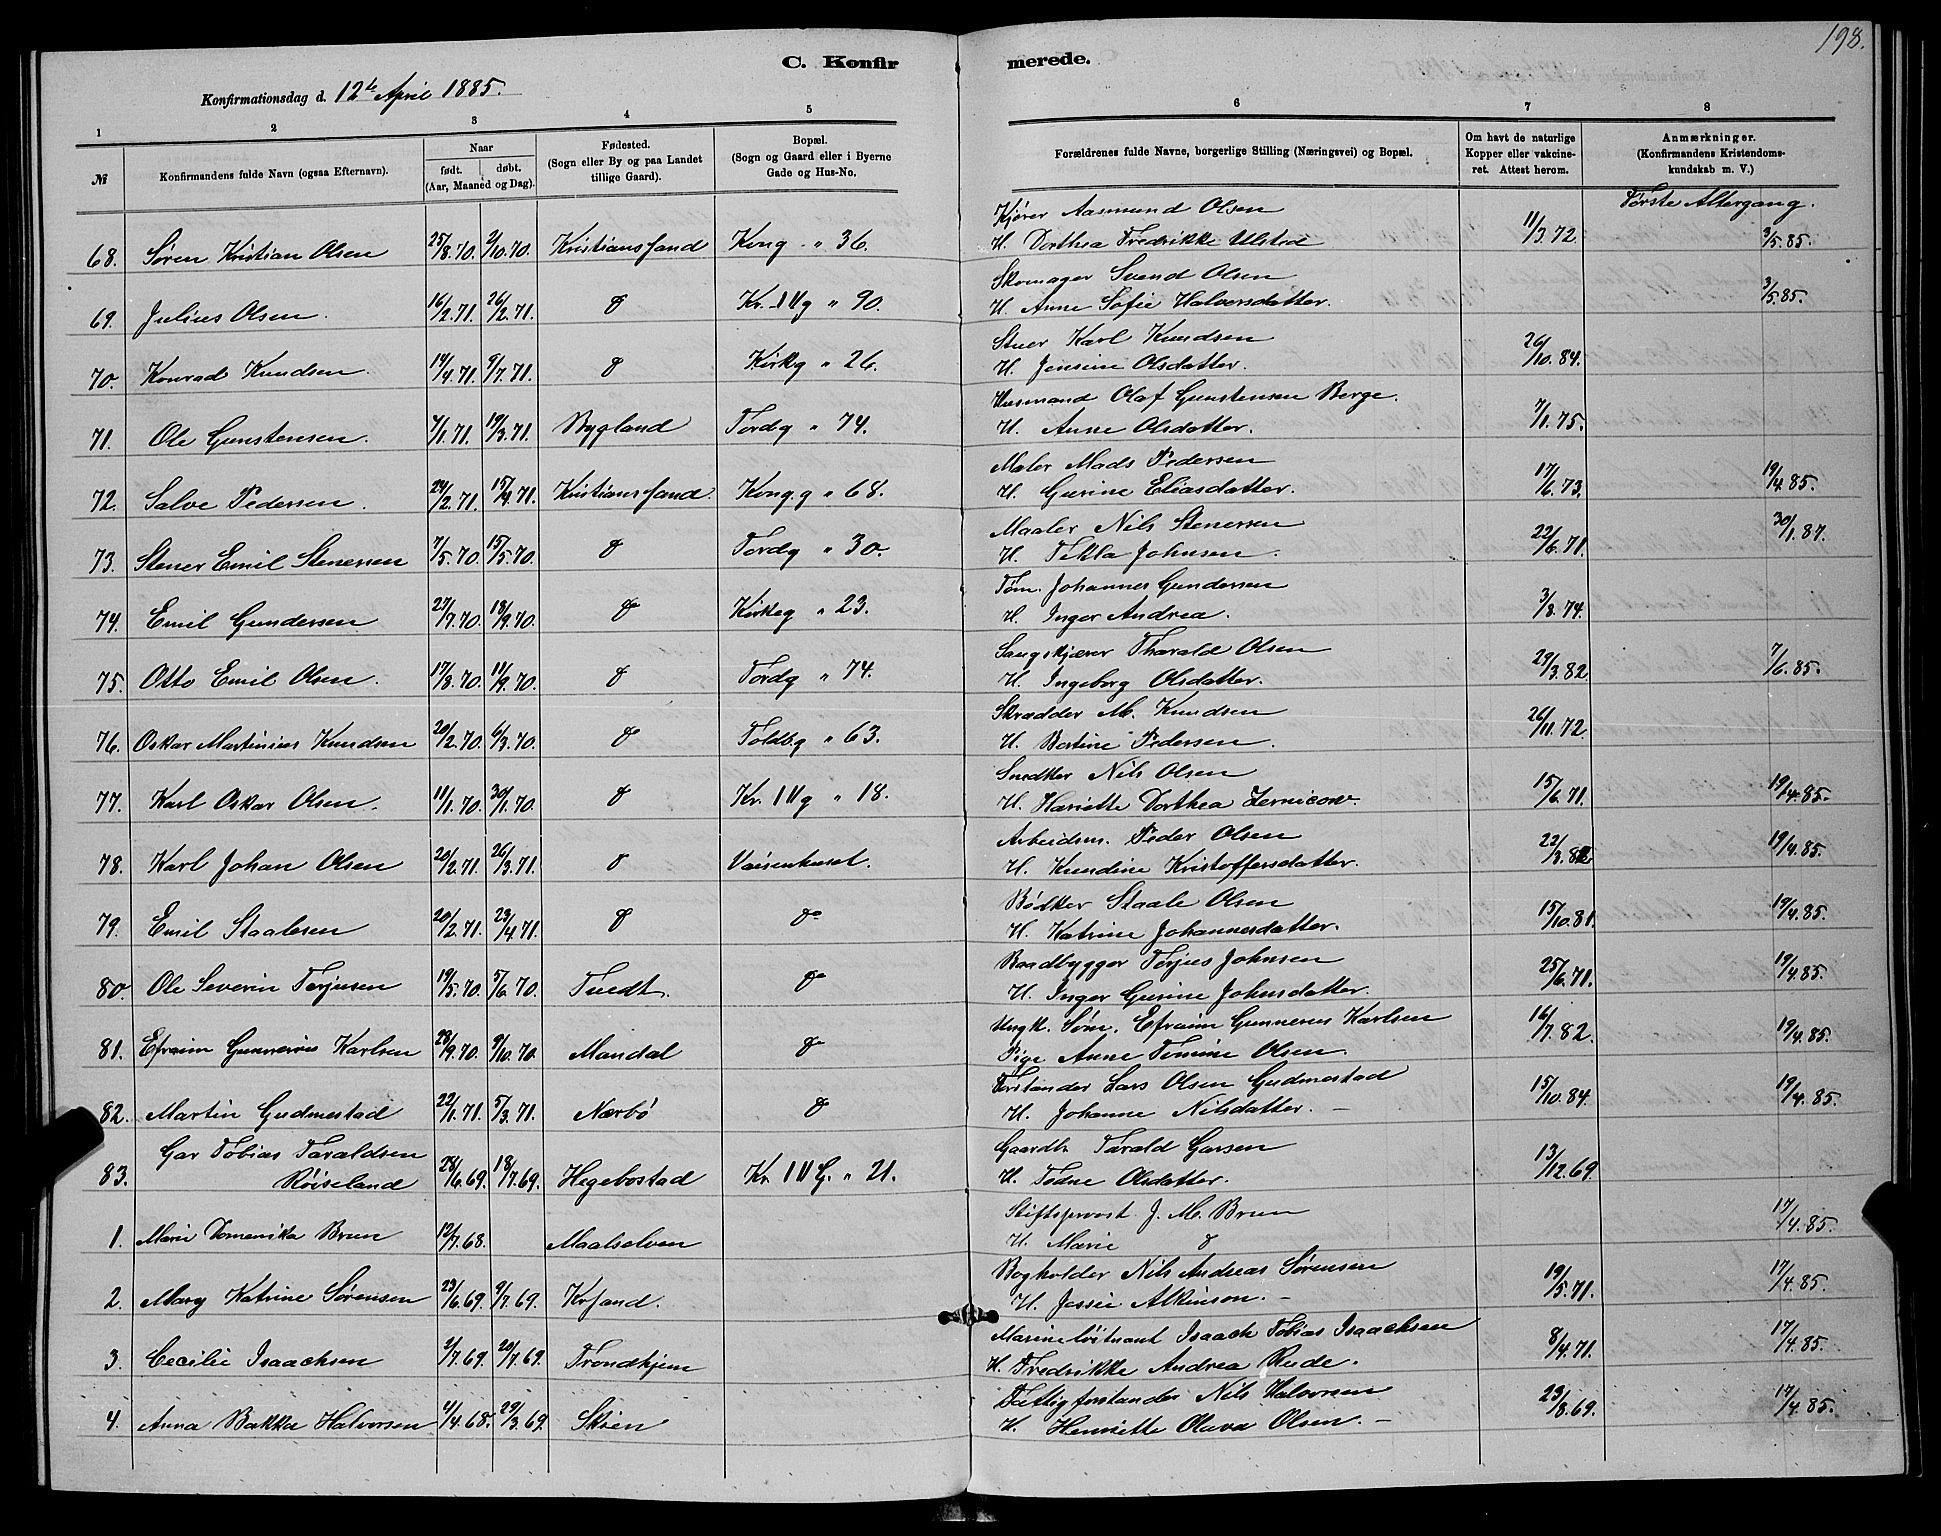 198.
C. Konfir merede.
Konfirmationsdag d. 12te April 1885.
1 2 3 4 5 6 7 8
№
Konfirmandens fulde Navn (ogsaa Efternavn).
Naar
født. døbt.
(Aar, Maaned og Dag).
Fødested.
(Sogn eller By og paa Landet
tillige Gaard).
Bopæl.
(Sogn og Gaard eller i Byerne
Gade og Hus-No.
Forældrenes fulde Navne, borgerlige Stilling (Næringsvei) og Bopæl.
Om havt de naturlige
Kopper eller vakcine-
ret. Attest herom.
Anmærkninger.
(Konfirmandens Kristendoms-
kundskab m. V.)
Første Altergang.
Kjører Aasmund Olsen
68. Søren Kristian Olsen 25/8.70. 2/10.70. Kristianssand Kong - " 36. H. Dorthea Fredrikke Ulstad 11/3.72. 3/5.85.
Skomager Svend Olsen
69. Julius Olsen. 16/2.71. 26/2.71. do Kr. IV g " 90. H. Anne Sofie Halvorsdatter. 3/5.85.
Stuer Karl Knudsen
70. Konrad Knudsen. 14/4.71. 9/7.71. do Kirkg " 26. H. Jensine Olsdatter. 26/10.84.
Husmand Olaf Gunstensen Berge.
71. Ole Gunstensen. 7/1.71. 19/3.71. Bygland Tordg " 74. H. Anne Olsdatter. 7/1.75.
Maler Mads Pedersen
72. Salve Pedersen. 24/2.71. 15/4.71. Kristianssand Kong.g " 68. H. Gurine Eliasdatter. 17/6.73. 19/4.85.
Maaler Nils Stenersen
73. Stener Emil Stenersen 7/5.70. 15/5.70. do Tordg " 30. H. Tekla Johnsen. 22/6.71. 30/1.87.
Tøm. Johannes Gundersen
74. Emil Gundersen 27/7.70. 18/9.70. do Kirkeg " 23. H. Inger Andrea. 3/8.74.
Saugskjærer Tharald Olsen
75. Otto Emil Olsen. 17/8.70. 11/9.70. do Tordg " 74. H. Ingeborg Olsdatter. 29/3.82. 7/6.85.
Skrædder M. Knudsen
76. Oskar Martinius Knudsen 20/2.70. 6/3.70. do Toldbg " 63. H. Bertine Pedersen. 26/11.72.
Snedker Nils Olsen
77. Karl Oskar Olsen. 11/1.70. 30/1.70. do Kr. IV g " 18. H. Hariette Dorthea Zernicow. 15/6.71. 19/4.85.
Arbeidsm. Peder Olsen
78. Karl Johan Olsen 20/2.71. 26/3.71. do Vaisenhuset. H. Kundine Kristoffersdatter. 22/3.82 19/4.85.
Bødker Staale Olsen
79. Emil Staalesen 20/2.71. 23/4.71. do do H. Katrine Johannesdatter. 15/10.81. 19/4.85.
Baadbygger Terjus Johnsen
80. Ole Severin Terjusen 19/5.70. 5/6.70. Tvedt. do H. Inger Gurine Johnsdatter. 25/6.71. 19/4.85.
Ungk. Søm. Efraim Gunnerus Karlsen
81. Efraim Gunnerius Karlsen 28/9.70. 9/10.70. Mandal do Pige Anne Tomine Olsen. 16/7.82. 19/4.85.
Forstander Lars Olsen Gudmestad
82. Martin Gudmestad 22/1.71. 5/3.71. Nærbø do H. Johanne Nilsdatter. - 15/10.84. 19/4.85.
Gar Tobias Taraldsen Gaardb. Tarald Garsen
83. Røiseland 28/6.69. 18/7.69. Hegebostad Kr. IV G. " 21. H. Tødne Olsdatter. 13/12.69.
Stiftsprovst J. M. Brun
1. Marie Domenika Brun 12/7.68. Maalselven H. Marie do 17/4.85.
Bogholder Nils Andreas Sørensen
2. Mary Katrine Sørensen 23/6.69. 9/7.69. Krsand. H. Jessie Atkinson. - 19/5.71. 17/4.85.
Marineløitnant Isaach Tobias Isaachsen
3. Cecilie Isaachsen 2/7.69. 20/7.69. Trondhjem H. Fredrikke Andrea Rude. 8/4.71. 17/4.85.
Fattigforstander Nils Halvorsen
4. Anna Bakka Halvorsen 4/4.68. 29/3.69. Skien H. Henriette Olava Olsen. - 23/8.69. 17/4.85.